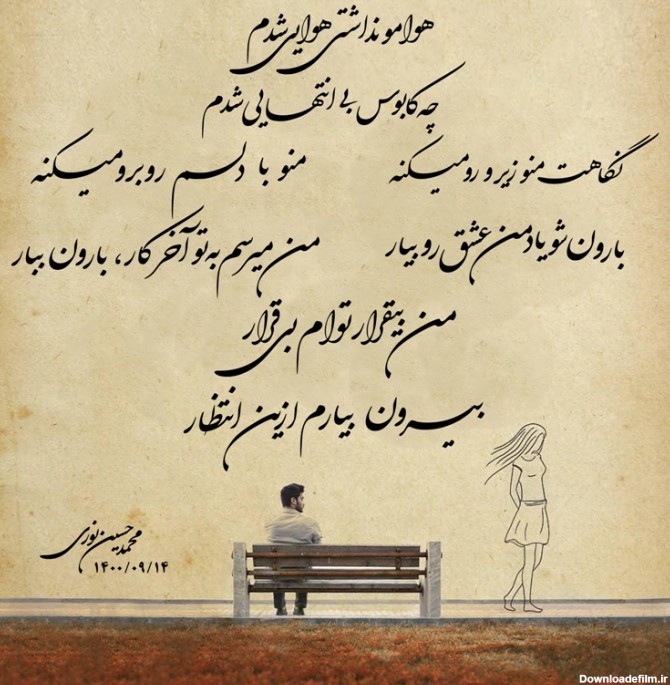 هوامو نداشتی هوایی شدم
چه کابوس بی انتهایی شدم
نگاهت منو زیر و رو میکنه
منو با دلم روبرو میکنه
بارون شو یاد من عشق رو بیار
من میرسم به تو آخر کار، بارون ببار
من بیقرار توام بی قرار
بیرون بیارم ازین انتظار
محمدحسین نوری
۱۴۰۰/۰۹/۱۴
Downloadefilm.ir